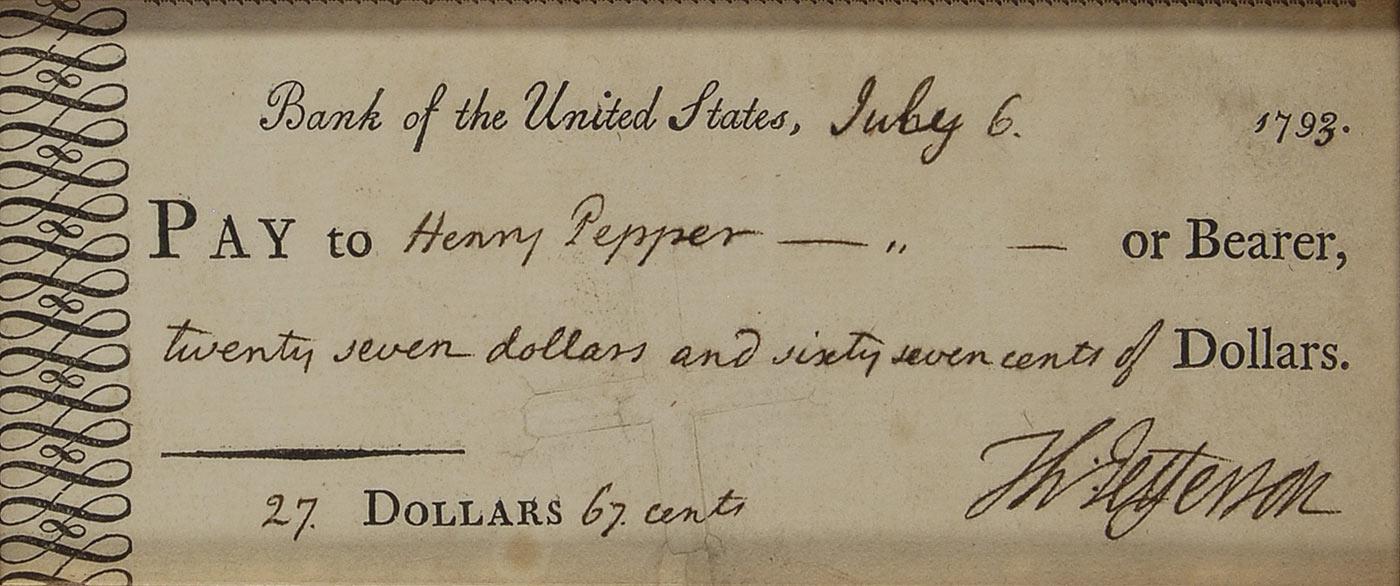 Bank of the United States, July 6. 1793.
PAY to Henry Pepper — „ — or Bearer,
twenty seven dollars and sixty seven cents of Dollars.
27. DOLLARS 67. cents
Th: Jefferson